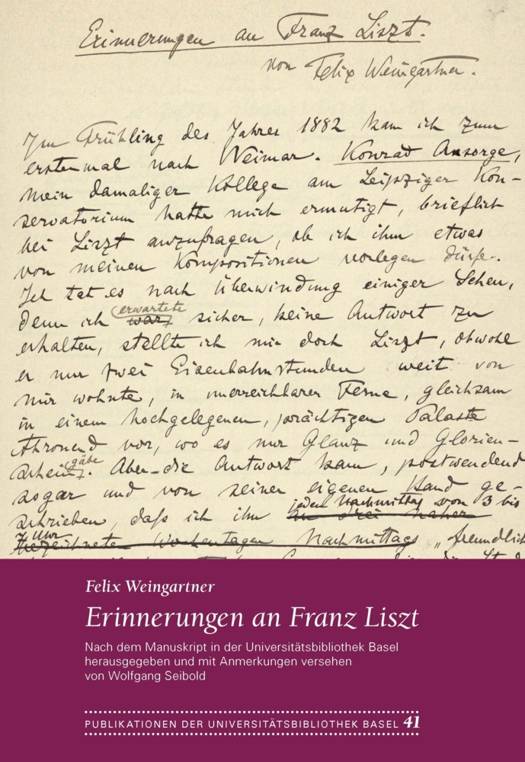 Erinnerungen an Franz Liszt.
von Felix Weingartner.
Im Frühling des Jahres 1882 kam ich zum
erstenmal nach Weimar. Konrad Ansorge,
mein damaliger Kollege am Leipziger Kon-
servatorium hatte mich ermutigt, brieflich
bei Liszt anzufragen, ob ich ihm etwas
von meinen Kompositionen vorlegen dürfe.
Ich tat es nach Überwindung einiger Scheu,
erwartete
denn ich war sicher, keine Antwort zu
erhalten, stellte ich mir doch Liszt, obwohl
er nur zwei Eisenbahnstunden weit von
mir wohnte, in unerreichbarer Ferne, gleichsam
in einem hochgelegenen, prächtigen Palaste
thronend vor, wo es nur Glanz und Glorien-
gäbe
schein. Aber die Antwort kam, postwendend
sogar und von seiner eigenen Hand ge-
jeden Nachmittag von 3 bis
schrieben, daß ich ihm in drei
Uhr
Wochentagen Nachmittags „freundlich
Felix Weingartner
Erinnerungen an Franz Liszt
Nach dem Manuskript in der Universitätsbibliothek Basel
herausgegeben und mit Anmerkungen versehen
von Wolfgang Seibold
PUBLIKATIONEN DER UNIVERSITÄTSBIBLIOTHEK BASEL 41